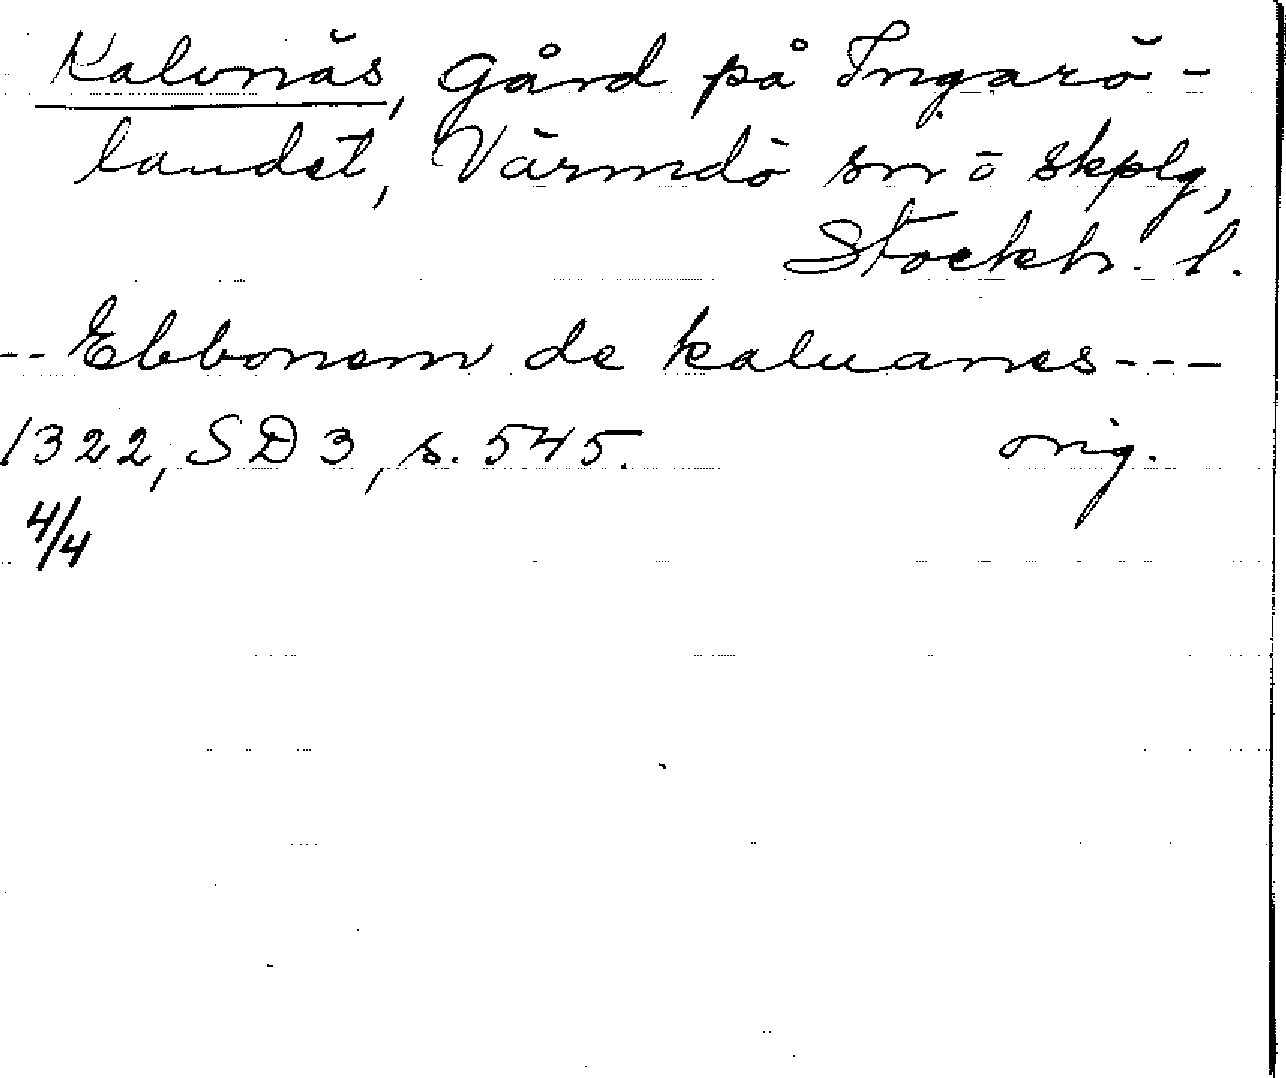 Kalvnäs, gård på Ingarö-
landet, Värmdö sn o skplg,
Stockh. l.
-- Ebbonem de kaluanes ---
1322, SD 3, s. 545. orig.
4/4